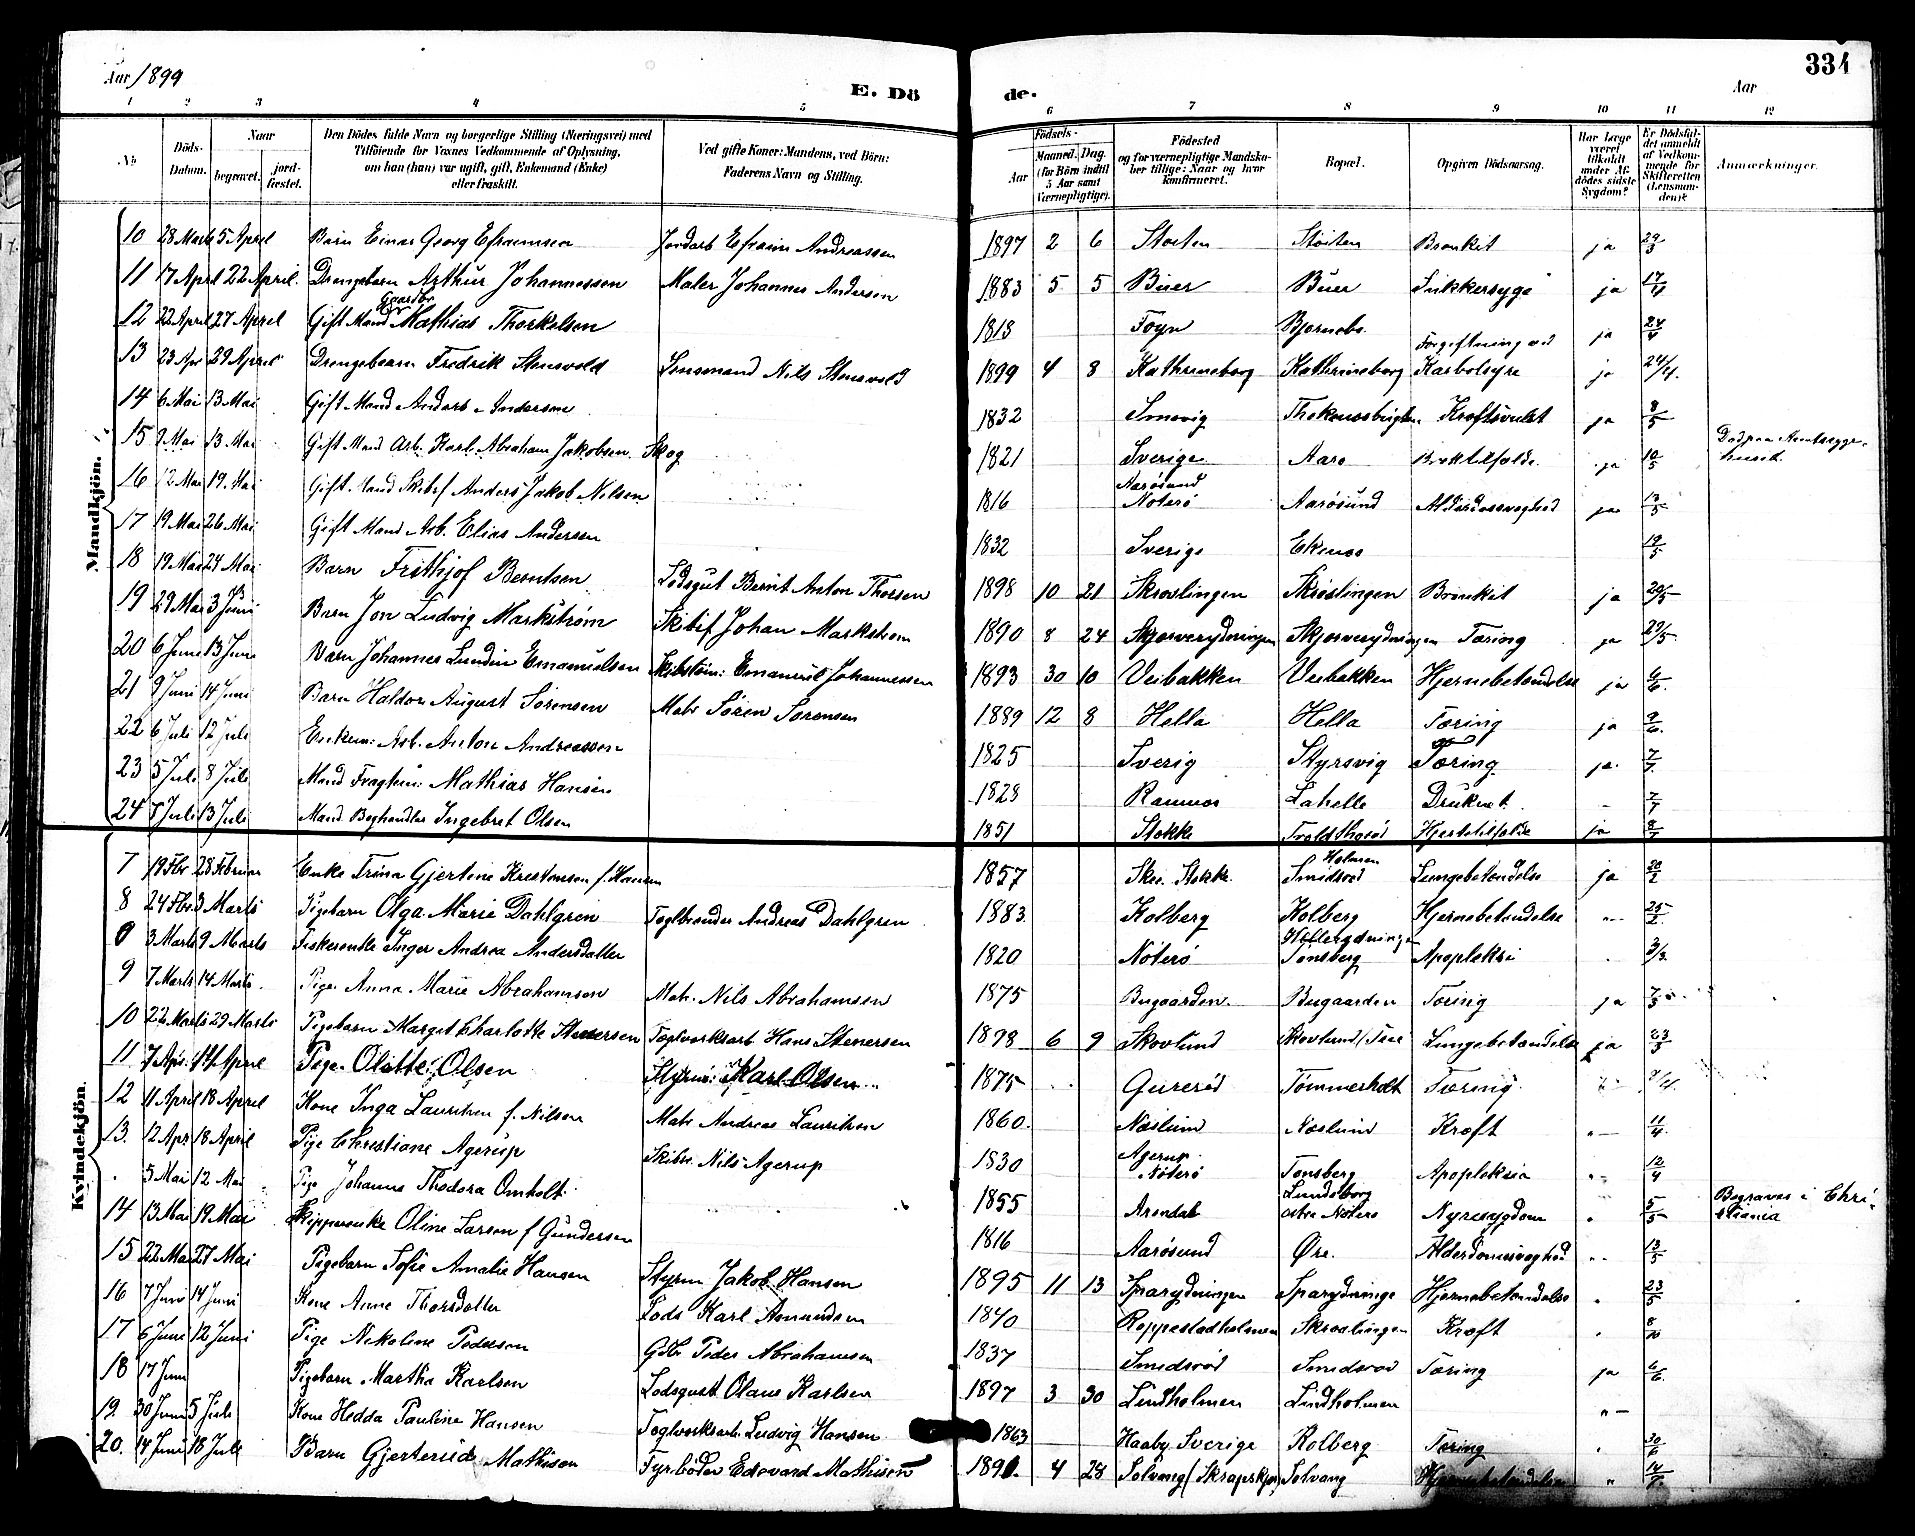 Aar 1899
E. Dö
de.
Aar
334
1 2 3 4 5 6 7 8 9 10 11 12
No
Döds-Datum.
Naar
begravet.
jord-fæstet.
Den Dödes fulde Navn og borgerlige Stilling (Næringsvei) med Tilföiende for Voxnes Vedkommende af Oplysning, om han (hun) var ugift, gift, Enkemand (Enke) eller fraskilt.
Ved gifte Koner: Mandens, ved Börn: Faderens Navn og Stilling.
Födsels-
Aar
Maaned. Dag.
(for Börn indtil 5 Aar samt Værnepligtige).
Födested og for værnepligtige Mandskaber tillige: Naar og hvor konfirmeret.
Bopæl.
Opgiven Dödsaarsag.
Har Læge været tilkaldt under Afdödes sidste Sygdom?
Er Dödsfaldet anmeldt af Vedkommende for Skifteretten (Lensmanden)?
Anmærkninger.
Mandkjön.
10 28 Marts 5 April Barn Einar Georg Efraimsen Jordarb Efraim Andreassen 1897 2 6 Støiten Støiten Bronkit ja 29/3
11 17 April 22 April. Drengebarn Arthur Johannessen Maler Johannes Andersen 1883 5 5 Buer Buer Sukkersyge ja 17/4
12 22 April 27 April Gift Mand Gaardbr Mathias Thorkelsen 1818 Foyn Bjornebo ja 24/4
13 23 Apr 29 April Drengebarn Fredrik Stensvold Lensmand Nils Stensvold 1899 4 8 Kathrineborg Kathrineborg Forgiftning ved Karbolsyre ja 24/4.
14 6 Mai 13 Mai Gift Mand Andersen 1832 Smevig Kræftsvulst ja 8/5
15 9 Mai 13 Mai Gift Mand Arb. Karl Abraham Jakobsen Skog 1821 Sverige Aaro Broktilfælde ja 10/5 Død paa Amtssygehuset.
16 12 Mai 19. Mai Gift Mand Skibsf Anders Jakob Nilsen 1816 Aarøsund Nøterø Aarøsund Alderdomssvaghed ja 13/5
17 19 Mai 26 Mai Gift Mand Arb. Elias Andersen 1832 Sverige Ekenes 19/5
18 19 Mai 24 Mai Barn Frithjof Berntsen Lodsgut Bernt Anton Thorsen 1898 10 21 Skrøslingen Skrøslingen Bronkit ja 20/5
19 29 Mai 3 Juni Barn Jon Ludvig Markstrøm Skibsf Johan Markstrøm 1890 8 24 Skjerverydningen Skjerverydningen Tæring ja 29/5
20 6 Juni 13 Juni Barn Johannes Lundin Emanuelsen Skibstøm: Emanuel Johannessen 1893 30 10 Veibakken Veibakken Hjernebetændelse ja 6/6.
21 9 Juni 14 Juni Barn Haldor August Sørensen Matr Søren Sørensen 1889 12 8 Hella Hella Tæring ja 9/6.
22 6 Juli 12 Juli Enkem: Arb. Anton Andreassen 1825 Sverig Styrsvig Tæring ja. 7/7.
23 5 Juli 8 Juli Mand Fragtem: Mathias Hansen 1828 Ramnes Lahelle Druknet. - 7/7
24 7 Juli 13 Juli Mand Beghandler Ingebret Olsen 1851 Stokke Hjertetilfælde ja 8/7
Kvindekjön.
7 19 Fbr 28 Februar Enke Trina Gjertine Kristensen f. Hansen 1857 Skee Stokke Holmen Smidsrød Lungebetændelse ja 20/2
8 24 Fbr. 3 Marts Pigebarn Olga Marie Dahlgren Teglbrænder Andreas Dahlgren 1883 Kolberg Kolberg Hjernebetændelse " 25/2.
3 Marts 9 Marts Fiskerenke Inger Andrea Andersdatter 1820 Nøterø Tønsberg Apopleksi 3/3
9 7 Marts 14 Marts. Pige Anna Marie Abrahamsen Matr. Nils Abrahamsen 1875 Bugaarden Bugaarden Tæring ja 7/3
10 22 Marts 29 Marts Pigebarn Margit Charlotte Stenersen Teglverksarb Hans Stenersen 1898 6 9 Skovlund Skovlund/Teie Lungebetændelse ja 23/3
11 7 Apr. 14 April Pige Olette Olsen Styrm: Karl Olsen 1875 Gurerød Tømmerholt Tæring. 7/4.
12 11 April 18 April Kone Inga Lauritsen f. Nilsen Matr Andreas Lauritsen 1860. Næslund Næslund Kræft " 11/4.
13. 12 Apr 18 April Pige Christiane Agerup Skibsr. Nils Agerup 1830 Agerup Nøterø Tønsberg Apopleksia " 12/4
5 Mai 12 Mai Pige Johanne Thedora Omholt 1855 Arendal Lundsborg østre Nøterø Nyresygdom " 5/5 Begraves i Christiania
14 13 Mai 19 Mai Skipperenke Oline Larsen f Gundersen 1816 Aarøsund Øre. Alderdomssvaghed " 13/5
15 22 Mai 27 Mai Pigebarn Sofie Amalie Hansen Styrm Jakob Hansen 1895 11 13 Sparydningen Sparydninge Hjernebetændelse " 23/5
16 7 Juni 14 Juni Kone Anne Thorsdatter Lods Karl Amundsen 1840 Roppestadholmen Skroslingen Kræft " 8/6
17 6 Juni 12 Juni Pige Nikoline Pedersen Gdbr Peder Abrahamsen 1837 Smidsrød Smidsrød Tæring ja 6/6.
18 17 Juni Pigebarn Martha Karlsen Lodsgut Olaus Karlsen 1897 3 30 Lindholmen Lindholmen " -
19. 30 Juni 5 Juli Kone Hedda Pauline Hansen Teglverksarb. Ludvig Hansen 1863 Haaby Sverige Kolberg Tæring " 30/6
20. 14 Juni 18 Juli Barn Gjerterud Mathisen Fyrbøder Edevard Mathisen 1890. 4 28 Solvang (Skrapskjær) Solvang Hjernebetændelse " 14/7.